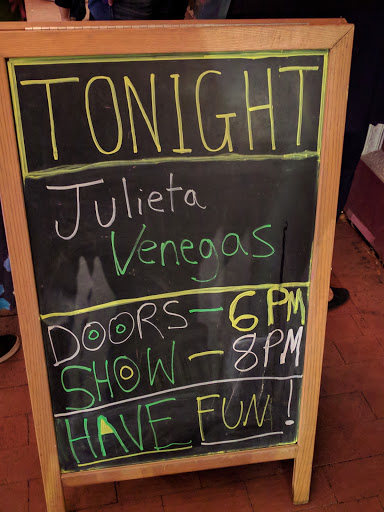 TONIGHT
Julieta
Venegas
DOORS - 6PM
SHOW - 8PM
HAVE FUN!